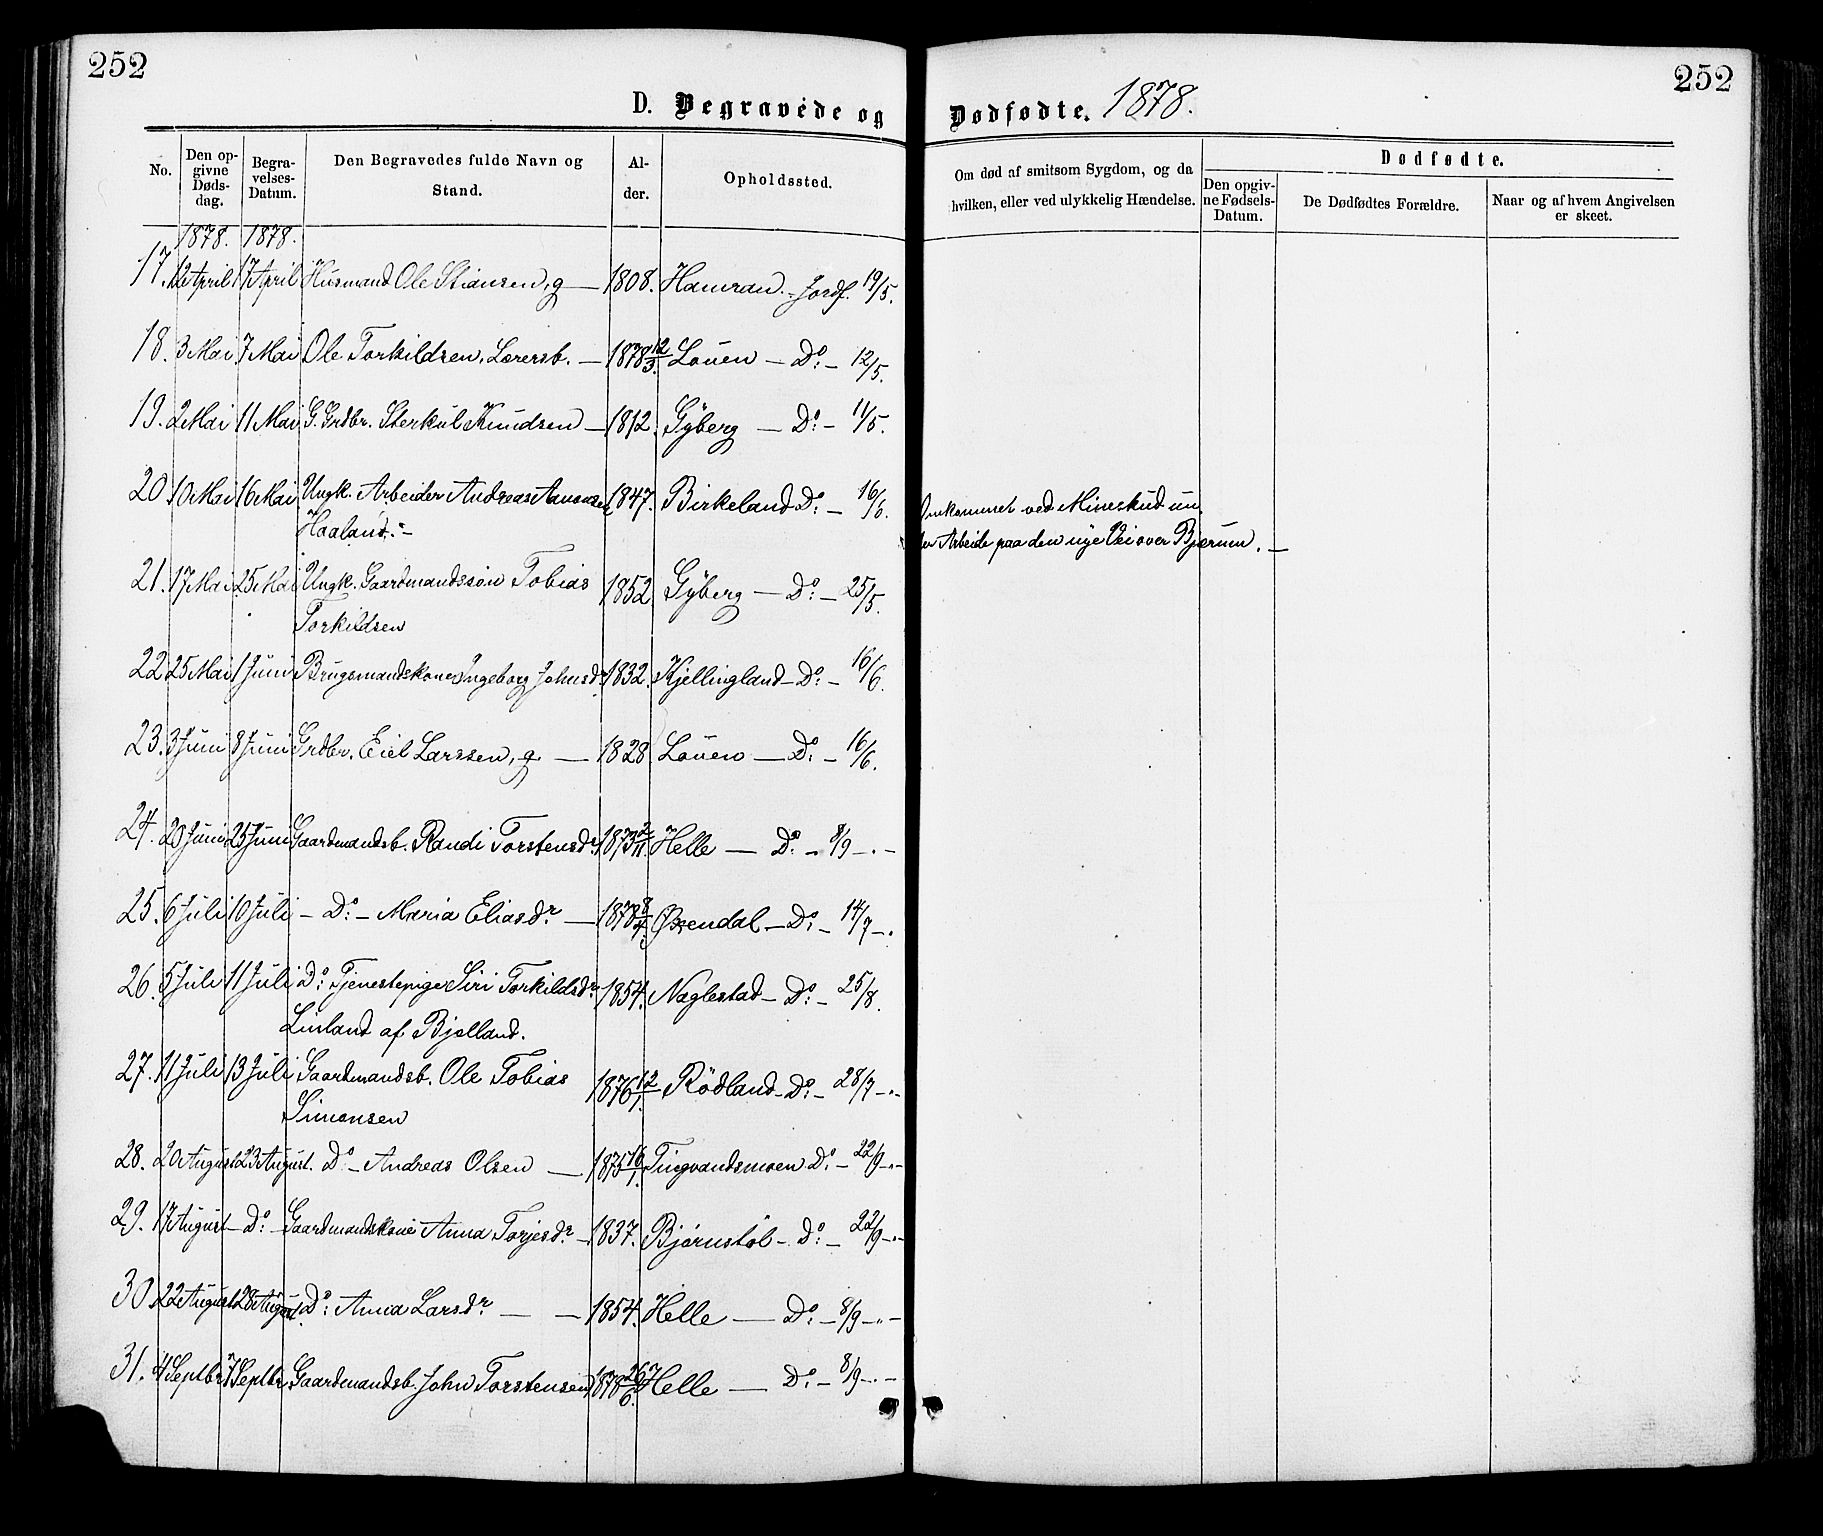 252
252
D. Begravede og Dødfødte. 1878.
No.
Den opgivne Dødsdag.
Begravelses-Datum.
Den Begravedes fulde Navn og Stand.
Alder.
Opholdssted.
Om død af smitsom Sygdom, og da hvilken, eller ved ulykkelig Hændelse.
Dødfødte.
Den opgivne Fødsels-Datum.
De Dødfødtes Forældre.
Naar og af hvem Angivelsen er skeet.
1878. 1878.
17. 12 April 17 April Husmand Ole Stiansen, g — 1808. Hamran. - Jordf. 19/5.
18. 3 Mai 7 Mai Ole Torkildsen, Lærersb. — 1878 12/3. Louen — Do: — 12/5.
19. 2 Mai 11 Mai G. Grdbr. Sterkul Knudsen — 1812. Gyberg — Do: — 11/5.
20 10 Mai 16 Mai Ungk. Arbeider Andreas Aanonsen 1847. Birkeland Do: — 16/6. Omkommet ved Mineskud un
Haaland. — der Arbeide paa den nye Vei over Bjerum. —
21. 17 Mai 25 Mai Ungk. Gaardmandssøn Tobias 1852 Gyberg — Do: — 25/5.
Torkildsen
22 25 Mai 1 Juni Brugsmandskone Ingeborg Johnsdr 1832. Kjellingland — Do: — 16/6.
23. 3 Juni 8 Juni Grdbr. Eiel Larssen, g. — 1828 Louen — Do: — 16/6.
24. 20 Juni 25 Juni Gaardmandsb. Randi Torstensdr. 1873 2/11. Helle — Do: — 8/9 —.—
25. 6 Juli 10 Juli — Do: — Maria Eliasdr. — 1878 8/4. Øxendal — Do: — 14/7 —.
26. 5 Juli 11 Juli Do: Tjenestepige Siri Torkildsdr. 1854. Naglestad — Do: — 25/8.
Linland af Bjelland.
27. 11 Juli 13 Juli Gaardmandsb. Ole Tobias 1876 12/1. Rödland — Do: — 28/7 —.—
Simonsen
28. 20 August 23 August. Do — Andreas Olsen — 1875 16/1. Tingvandsmoen Do: — 22/9 —.—
29. 17 August — Do: — Gaardmandskone Anna Torjesdr. — 1837. Bjørnstöl — Do: — 22/9 —.—
30. 22 August 28 August Do: Anna Larsdr — — 1854. Helle — Do: — 8/9 —.—
31. 4 Septbr 7 Septbr. Gaardmandsb. John Torstensen 1878 26/6. Helle — Do: — 8/9 —.—